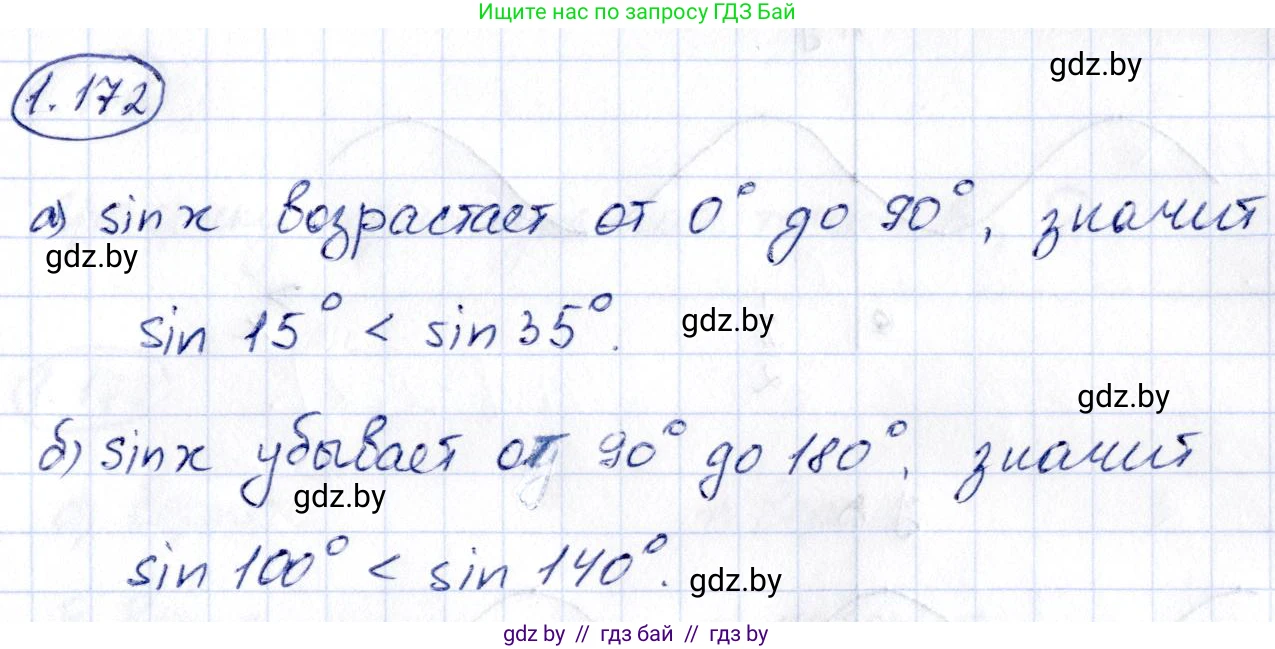 Ищите нас по запросу ГДЗ Бай
1.172
gdz.by
а) sin x возрастает от 0° до 90°, значит
gdz.by
sin 15° < sin 35°.
gdz.by
gdz.by
б) sin x убывает от 90° до 180°, значит
gdz.by
sin 100° < sin 140°.
gdz.by
gdz by // гдз бай // гдз by